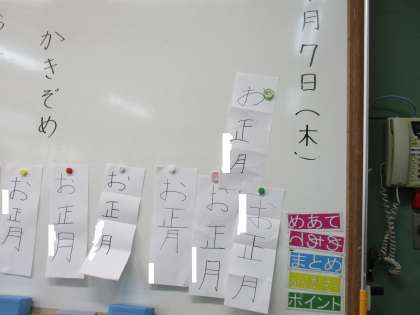 月7日(木)
かきぞめ
お正月
お正月
お正月
お正月
お正月
お正月
お正月
めあて
まとめ
ポイント